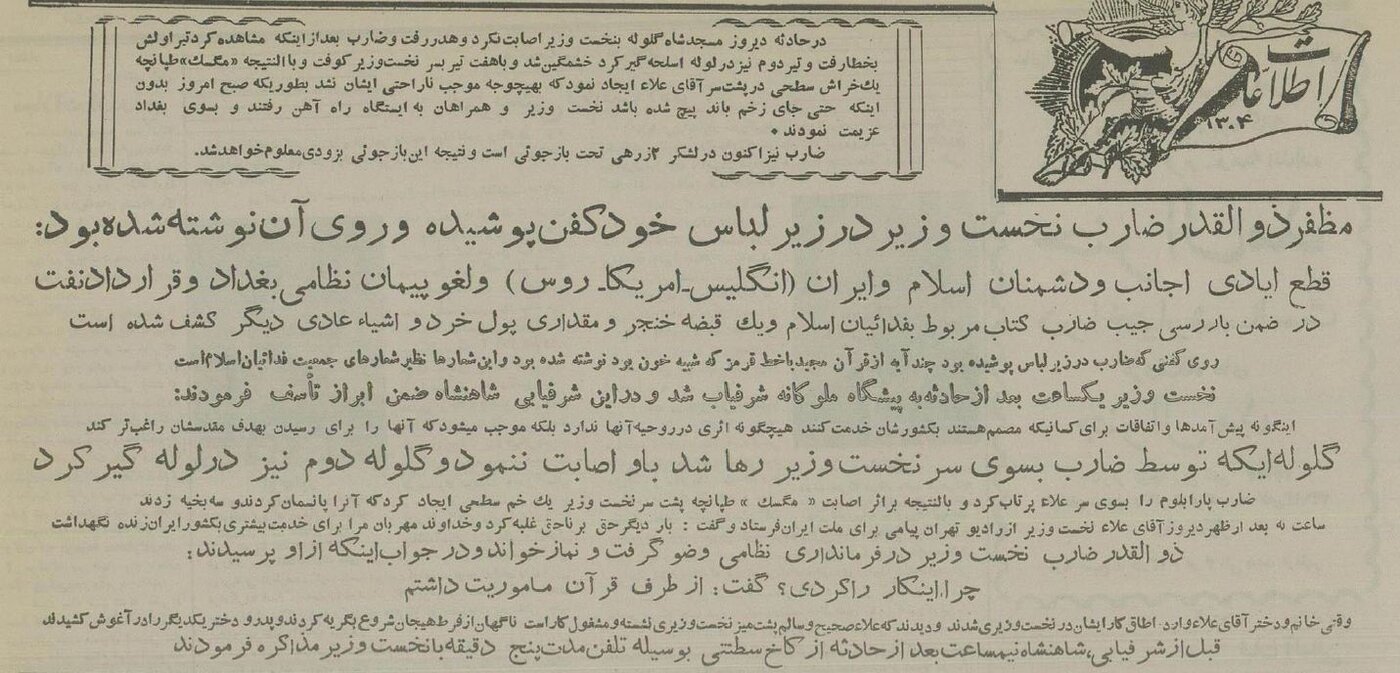 اطلاعات
۱۳۰۴
در حادثه دیروز مسجد شاه گلوله بنخست وزیر اصابت نکرد و هدر رفت و ضارب بعد از اینکه مشاهده کرد تیر اولش
بخطا رفت و تیر دوم نیز در لوله اسلحه گیر کرد خشمگین شد و با هفت تیر بسر نخست وزیر کوفت و با النتیجه «مگسك» طپانچه
یك خراش سطحی در پشت سر آقای علاء ایجاد نمود که بهیچوجه موجب ناراحتی ایشان نشد بطوریکه صبح امروز بدون
اینکه حتی جای زخم باند پیچ شده باشد نخست وزیر و همراهان به ایستگاه راه آهن رفتند و بسوی بغداد
عزیمت نمودند.
ضارب نیز اکنون در لشکر ۲ زرهی تحت بازجوئی است و نتیجه این بازجوئی بزودی معلوم خواهد شد.
مظفر ذوالقدر ضارب نخست وزیر در زیر لباس خود کفن پوشیده و روی آن نوشته شده بود:
قطع ایادی اجانب و دشمنان اسلام و ایران (انگلیس ـ امریکا ـ روس) و لغو پیمان نظامی بغداد و قرارداد نفت
در ضمن بازرسی جیب ضارب کتاب مربوط بفدائیان اسلام و یك قبضه خنجر و مقداری پول خرد و اشیاء عادی دیگر کشف شده است
روی کفنی که ضارب در زیر لباس پوشیده بود چند آیه از قرآن مجید با خط قرمز که شبیه خون بود نوشته شده بود و این شعارها نظیر شعارهای جمعیت فدائیان اسلام است
نخست وزیر یکساعت بعد از حادثه به پیشگاه ملوکانه شرفیاب شد و در این شرفیابی شاهنشاه ضمن ابراز تأسف فرمودند:
اینگونه پیش آمدها و اتفاقات برای کسانیکه مصمم هستند بکشورشان خدمت کنند هیچگونه اثری در روحیه آنها ندارد بلکه موجب میشود که آنها را برای رسیدن بهدف مقدسشان راغب تر کند
گلوله ایکه توسط ضارب بسوی سر نخست وزیر رها شد باو اصابت ننمود و گلوله دوم نیز در لوله گیر کرد
ضارب پارابلوم را بسوی سر علاء پرتاب کرد و بالنتیجه بر اثر اصابت «مگسك» طپانچه پشت سر نخست وزیر یك خم سطحی ایجاد کرد که آنرا پانسمان کردند و سه بخیه زدند
ساعت نه بعد از ظهر دیروز آقای علاء نخست وزیر از رادیو تهران پیامی برای ملت ایران فرستاد و گفت : بار دیگر حق بر ناحق غلبه کرد و خداوند مهربان مرا برای خدمت بیشتری بکشور ایران زنده نگهداشت
ذوالقدر ضارب نخست وزیر در فرمانداری نظامی وضو گرفت و نماز خواند و در جواب اینکه از او پرسیدند:
چرا اینکار را کردی؟ گفت: از طرف قرآن ماموریت داشتم
وقتی خانم و دختر آقای علاء وارد اطاق کار ایشان در نخست وزیری شدند و دیدند که علاء صحیح و سالم پشت میز نخست وزیری نشسته و مشغول کار است ناگهان از فرط هیجان شروع بگریه کردند و پدر و دختر یکدیگر را در آغوش کشیدند
قبل از شرفیابی، شاهنشاه نیمساعت بعد از حادثه از کاخ سلطنتی بوسیله تلفن مدت پنج دقیقه با نخست وزیر مذاکره فرمودند